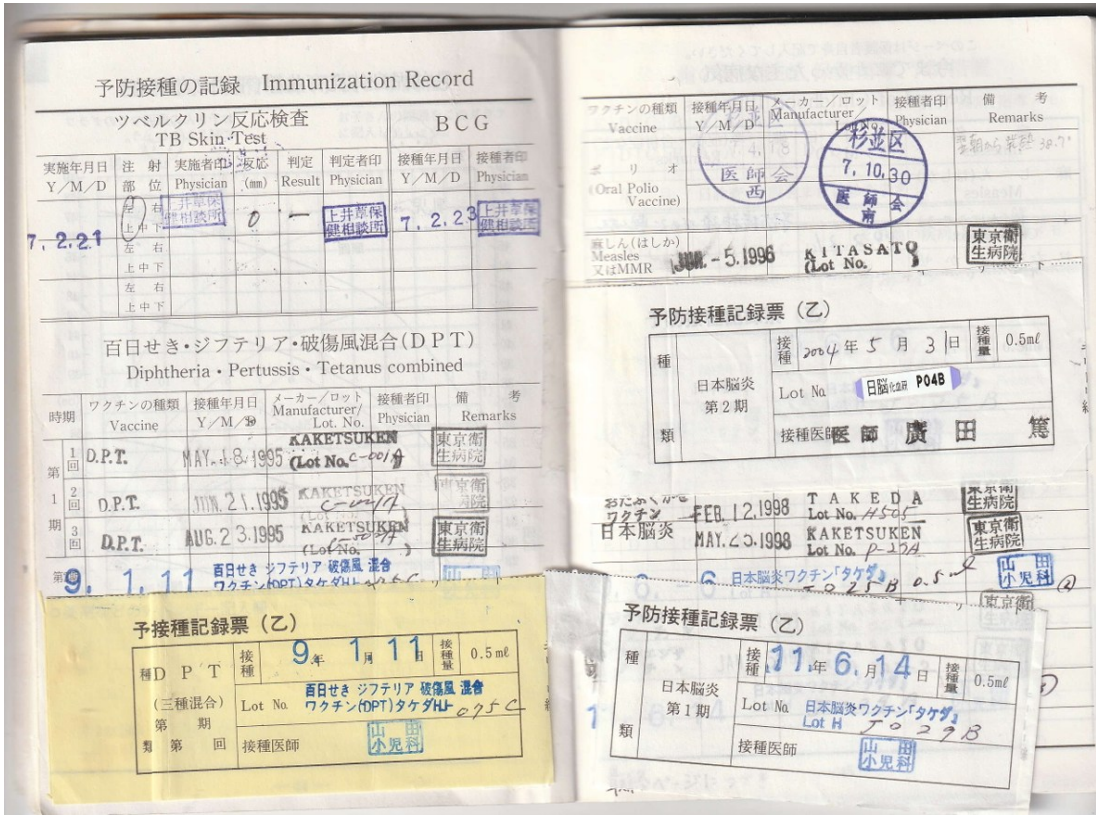 予防接種の記録 Immunization Record
ツベルクリン反応検査
TB Skin Test
BCG
実施年月日
Y/M/D
注射
部位
実施者印
Physician
反応
(mm)
判定
Result
判定者印
Physician
接種年月日
Y/M/D
接種者印
Physician
7.2.21
左 右
上中下
上井草保
健相談所
0
—
上井草保
健相談所
7.2.23
上井草保
健相談所
左 右
上中下
左 右
上中下
百日せき・ジフテリア・破傷風混合(DPT)
Diphtheria・Pertussis・Tetanus combined
時期
ワクチンの種類
Vaccine
接種年月日
Y/M/D
メーカー/ロット
Manufacturer/
Lot. No.
接種者印
Physician
備 考
Remarks
第1期
1回
D.P.T.
MAY.18.1995
KAKETSUKEN
(Lot No. C-001A
東京衛
生病院
2回
D.P.T.
JUN.21.1995
KAKETSUKEN
東京衛
生病院
3回
D.P.T.
AUG.23.1995
KAKETSUKEN
(Lot No. )
東京衛
生病院
9. 1.11
百日せき ジフテリア 破傷風 混合
ワクチン(DPT)タケダHJ
山田
予接種記録票(乙)
種類
DPT
(三種混合)
第 期
第 回
接種
9.年 1月 11日
接種量
0.5mℓ
Lot No.
百日せき ジフテリア 破傷風 混合
ワクチン(DPT)タケダHJ 075C
接種医師
山田
小児科
ワクチンの種類
Vaccine
接種年月日
Y/M/D
メーカー/ロット
Manufacturer/
接種者印
Physician
備 考
Remarks
ポリオ
(Oral Polio
Vaccine)
4.18
医師会
西
杉並区
7.10.30
医師会
南
麻しん(はしか)
Measles
又はMMR
JUN.-5.1996
KITASATO
(Lot No. )
東京衛
生病院
予防接種記録票(乙)
種類
日本脳炎
第2期
接種
2004年5月3日
接種量
0.5ml
Lot No.
日脳 化血研 P04B
接種医師
医師 廣田 篤
おたふくかぜ
ワクチン
FEB.12.1998
TAKEDA
Lot No. H505
東京衛
生病院
日本脳炎
MAY.25.1998
KAKETSUKEN
Lot No. P-29A
東京衛
生病院
6
日本脳炎ワクチン「タケダ」
J025B 0.5ml
山田
小児科
東京衛
予防接種記録票(乙)
種類
日本脳炎
第1期
接種
11.年 6.月 14日
接種量
0.5ml
Lot No.
日本脳炎ワクチン「タケダ」
Lot H J029B
接種医師
山田
小児科